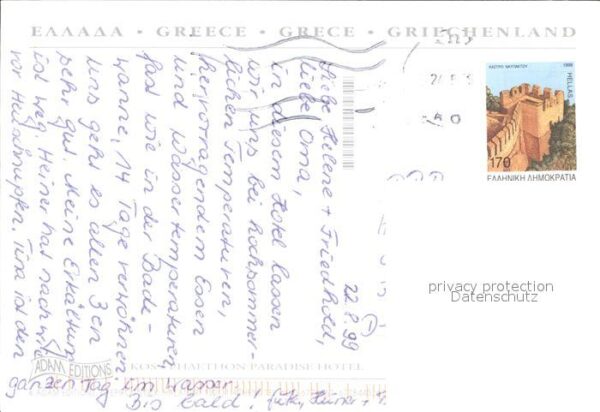 ΕΛΛΑΔΑ · GREECE · GRECE · GRIECHENLAND
22.8.99
Liebe Helene + Friedhold,
liebe Oma,
in diesem Hotel lassen
wir uns bei hochsommer-
lichen Temperaturen,
hervorragendem Essen
und Wassertemperaturen
fast wie in der Bade-
wanne, 14 Tage verwöhnen
Uns geht es allen 3en
sehr gut. Meine Erkältung
ist weg. Heiner hat nach wie
vor Heuschnupfen. Tina ist den
ganzen Tag im Wasser.
Bis bald!
ΚΑΣΤΡΟ ΝΑΥΠΑΚΤΟΥ
1998
HELLAS
170
ΕΛΛΗΝΙΚΗ ΔΗΜΟΚΡΑΤΙΑ
privacy protection
Datenschutz
ADAM EDITIONS
KOS · PHAETHON PARADISE HOTEL